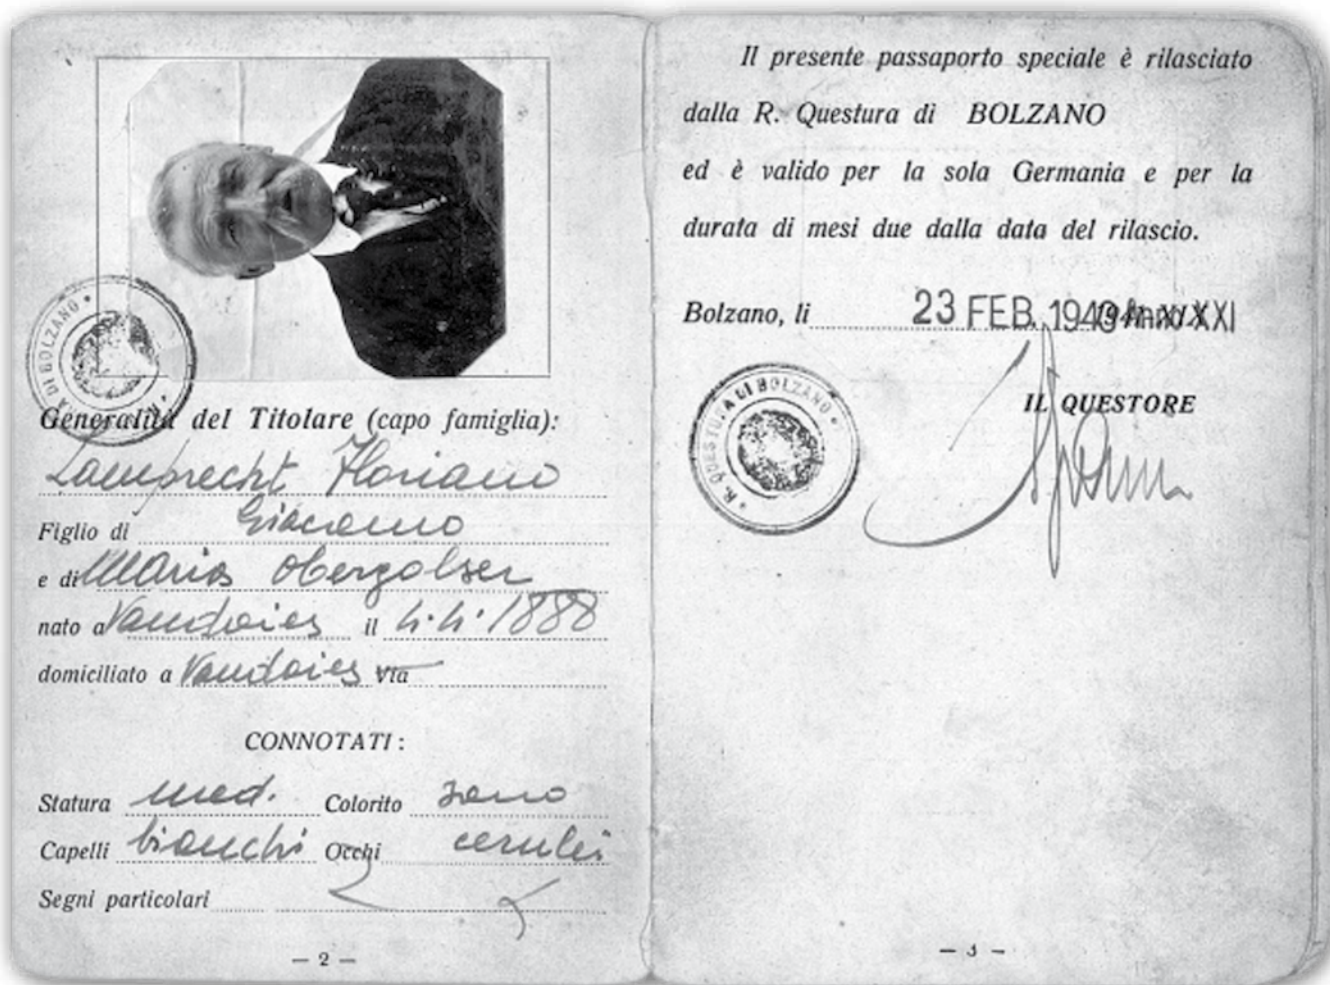 DI BOLZANO
Generalità del Titolare (capo famiglia):
Lamprecht Floriano
Figlio di Giacomo
e di Maria Obergolser
nato a Vandoies il 4.4.1888
domiciliato a Vandoies via
CONNOTATI:
Statura med. Colorito sano
Capelli bianchi Occhi cerulei
Segni particolari
— 2 —
Il presente passaporto speciale è rilasciato
dalla R. Questura di BOLZANO
ed è valido per la sola Germania e per la
durata di mesi due dalla data del rilascio.
Bolzano, li 23 FEB. 1943 XXI
R. QUESTURA DI BOLZANO
IL QUESTORE
— 3 —